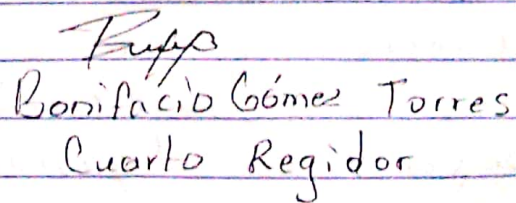 Bonifácio Gómez Torres
Cuarto Regidor